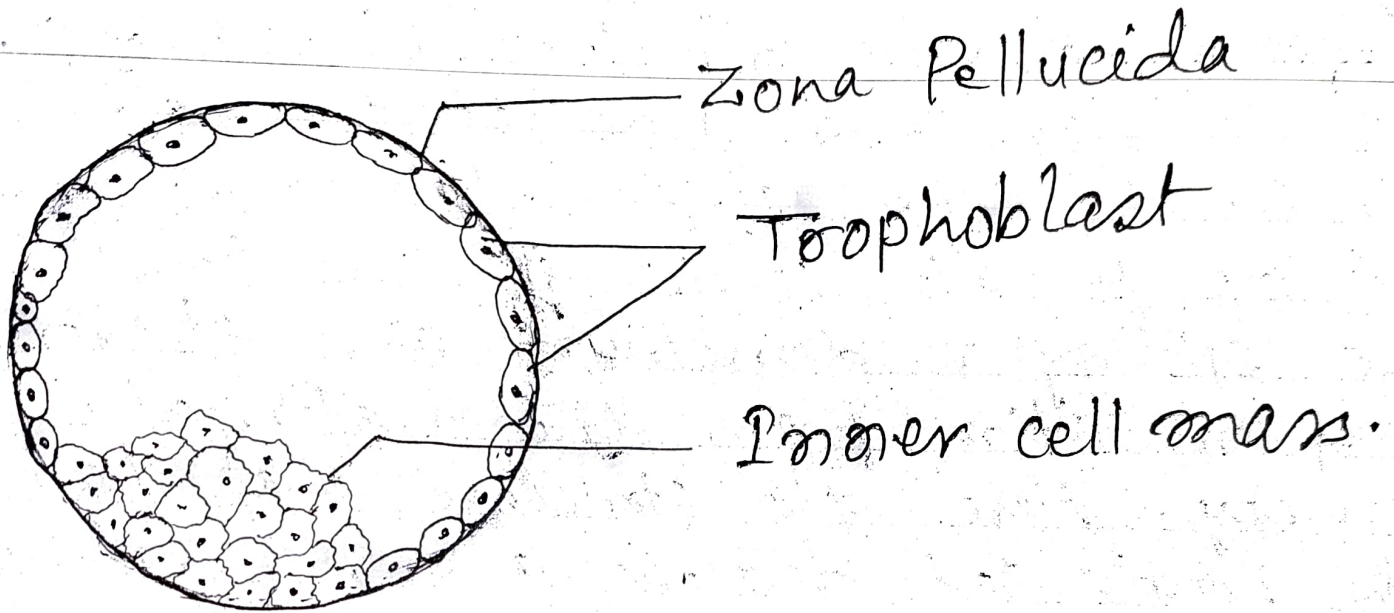 Zona Pellucida
Trophoblast
Inner cell mass.